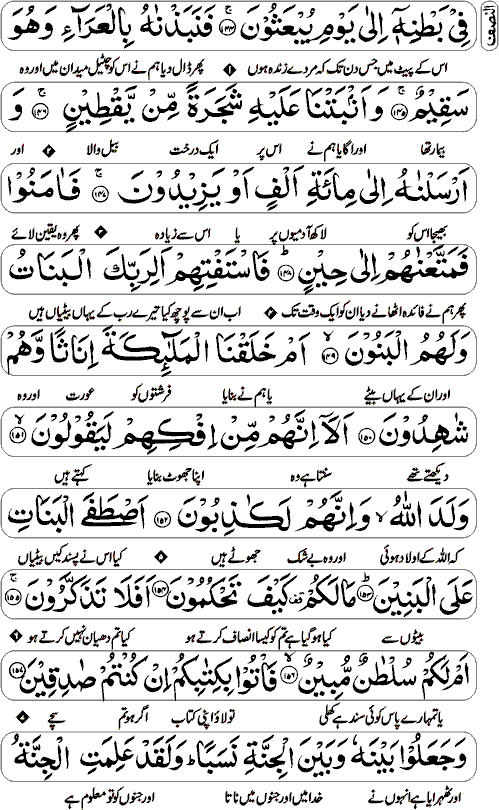 الصّٰفّٰت
فِیْ بَطْنِهٖۤ اِلٰی یَوْمِ یُبْعَثُوْنَ ﴿۱۴۴﴾ فَنَبَذْنٰهُ بِالْعَرَآءِ وَهُوَ
اس کے پیٹ میں جس دن تک کہ مردے زندہ ہوں ۱ پھر ڈال دیا ہم نے اس کو چٹیل میدان میں اور وہ
سَقِیْمٌ ﴿۱۴۵﴾ وَاَنْۢبَتْنَا عَلَیْهِ شَجَرَةً مِّنْ یَّقْطِیْنٍ ﴿۱۴۶﴾ وَ
بیمار تھا اور اگایا ہم نے اس پر ایک درخت بیل والا ۲ اور
اَرْسَلْنٰهُ اِلٰی مِائَةِ اَلْفٍ اَوْ یَزِیْدُوْنَ ﴿۱۴۷﴾ فَاٰمَنُوْا
بھیجا اس کو لاکھ آدمیوں پر یا اس سے زیادہ پھر وہ یقین لائے
فَمَتَّعْنٰهُمْ اِلٰی حِیْنٍ ﴿۱۴۸﴾ فَاسْتَفْتِهِمْ اَلِرَبِّكَ الْبَنَاتُ
پھر ہم نے فائدہ اٹھانے دیا ان کو ایک وقت تک اب ان سے پوچھ کیا تیرے رب کے یہاں بیٹیاں ہیں
وَلَهُمُ الْبَنُوْنَ ﴿۱۴۹﴾ اَمْ خَلَقْنَا الْمَلٰٓئِكَةَ اِنَاثًا وَّهُمْ
اور ان کے یہاں بیٹے یا ہم نے بنایا فرشتوں کو عورت اور وہ
شٰهِدُوْنَ ﴿۱۵۰﴾ اَلَاۤ اِنَّهُمْ مِّنْ اِفْكِهِمْ لَیَقُوْلُوْنَ ﴿۱۵۱﴾
دیکھتے تھے سنتا ہے وہ اپنا جھوٹ بنایا کہتے ہیں
وَلَدَ اللّٰهُ وَاِنَّهُمْ لَكٰذِبُوْنَ ﴿۱۵۲﴾ اَصْطَفَی الْبَنَاتِ
کہ اللہ کے اولاد ہوئی اور وہ بے شک جھوٹے ہیں ۸ کیا اس نے پسند کیں بیٹیاں
عَلَی الْبَنِیْنَ ﴿۱۵۳﴾ مَا لَكُمْ كَیْفَ تَحْكُمُوْنَ ﴿۱۵۴﴾ اَفَلَا تَذَكَّرُوْنَ ﴿۱۵۵﴾
بیٹوں سے کیا ہو گیا ہے تم کو کیسا انصاف کرتے ہو کیا تم دھیان نہیں کرتے ہو
اَمْ لَكُمْ سُلْطٰنٌ مُّبِیْنٌ ﴿۱۵۶﴾ فَاْتُوْا بِكِتٰبِكُمْ اِنْ كُنْتُمْ صٰدِقِیْنَ ﴿۱۵۷﴾
یا تمہارے پاس کوئی سند ہے کھلی تو لاؤ اپنی کتاب اگر ہو تم سچے ۸
وَجَعَلُوْا بَیْنَهٗ وَبَیْنَ الْجِنَّةِ نَسَبًا وَلَقَدْ عَلِمَتِ الْجِنَّةُ
اور ٹھہرایا ہے انہوں نے خدا میں اور جنوں میں ناتا اور جنوں کو تو معلوم ہے